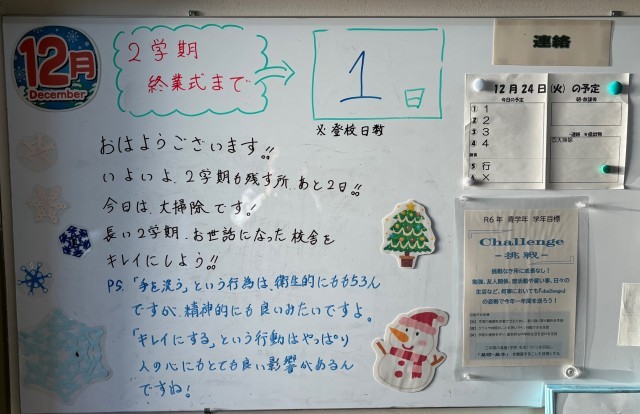 12月
December
2学期
終業式まで
1日
※登校日数
おはようございます!!
いよいよ、2学期も残す所、あと2日!!
今日は、大掃除です。
長い2学期、お世話になった校舎を
キレイにしよう!!
P.S.「手を洗う」という行為は、衛生的にもちろん
ですが、精神的にも良いみたいですよ。
「キレイにする」という行動はやっぱり
人の心にもとても良い影響があるん
ですね!
連絡
12月24日(火)の予定
今日の予定
1 1
2 2
3 3
4 4
5 行
6 ×
R6年 青学年 学年目標
「Challenge
-挑戦-
挑戦なき所に成長なし!